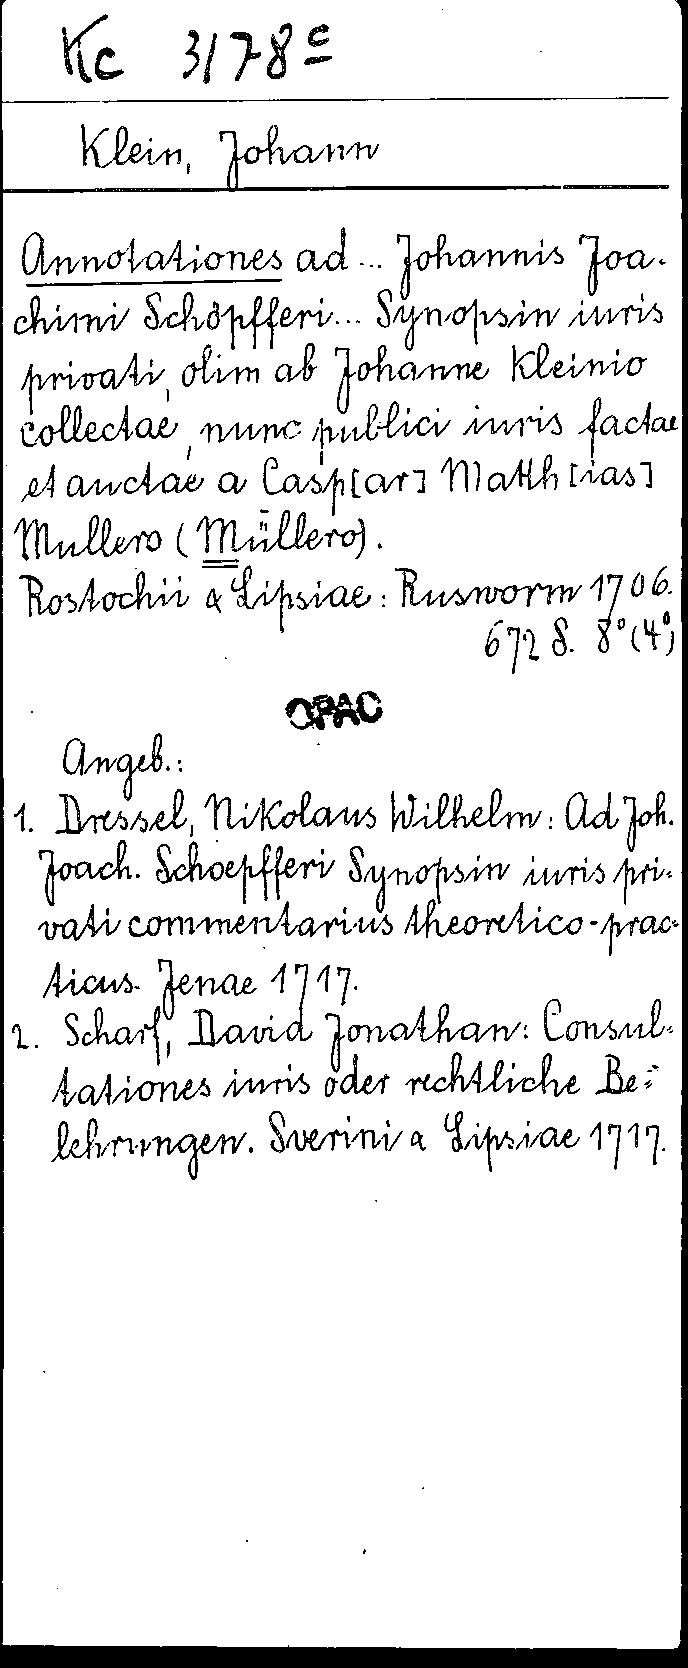 Kc 3178 c
Klein, Johann
Annotationes ad ... Johannis Joa-
chimi Schöpfferi ... Synopsin iuris
privati, olim ab Johanne Kleinio
collectae, nunc publici iuris factae
et auctae a Casp[ar] Matth[ias]
Mullero (Müllero).
Rostochii & Lipsiae: Rusworm 1706.
672 S. 8° (4°)
OPAC
Angeb.:
1. Dressel, Nikolaus Wilhelm: Ad Joh.
Joach. Schoepfferi Synopsin iuris pri-
vati commentarius theoretico-prac-
ticus. Jenae 1717.
2. Scharf, David Jonathan: Consul-
tationes iuris oder rechtliche Be-
lehrungen. Sverini & Lipsiae 1717.